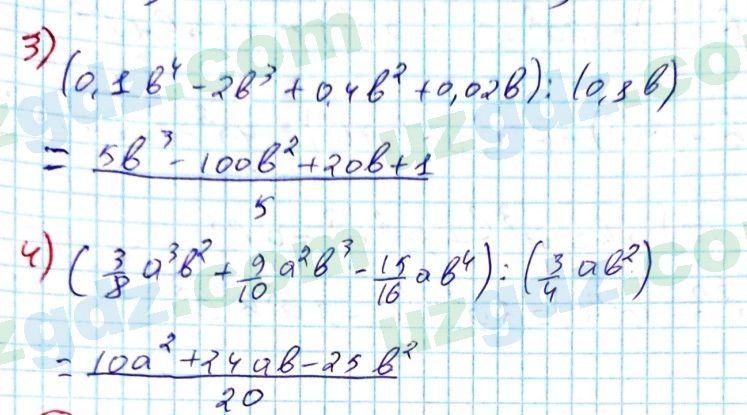 3)
(0,1b⁴ - 2b³ + 0,4b² + 0,02b) : (0,1b)
= (5b³ - 100b² + 20b + 1)/5
4) (3/8 a³b² + 9/10 a²b³ - 15/16 ab⁴) : (3/4 ab²)
= (10a² + 24ab - 25b²)/20
uzgdz.com